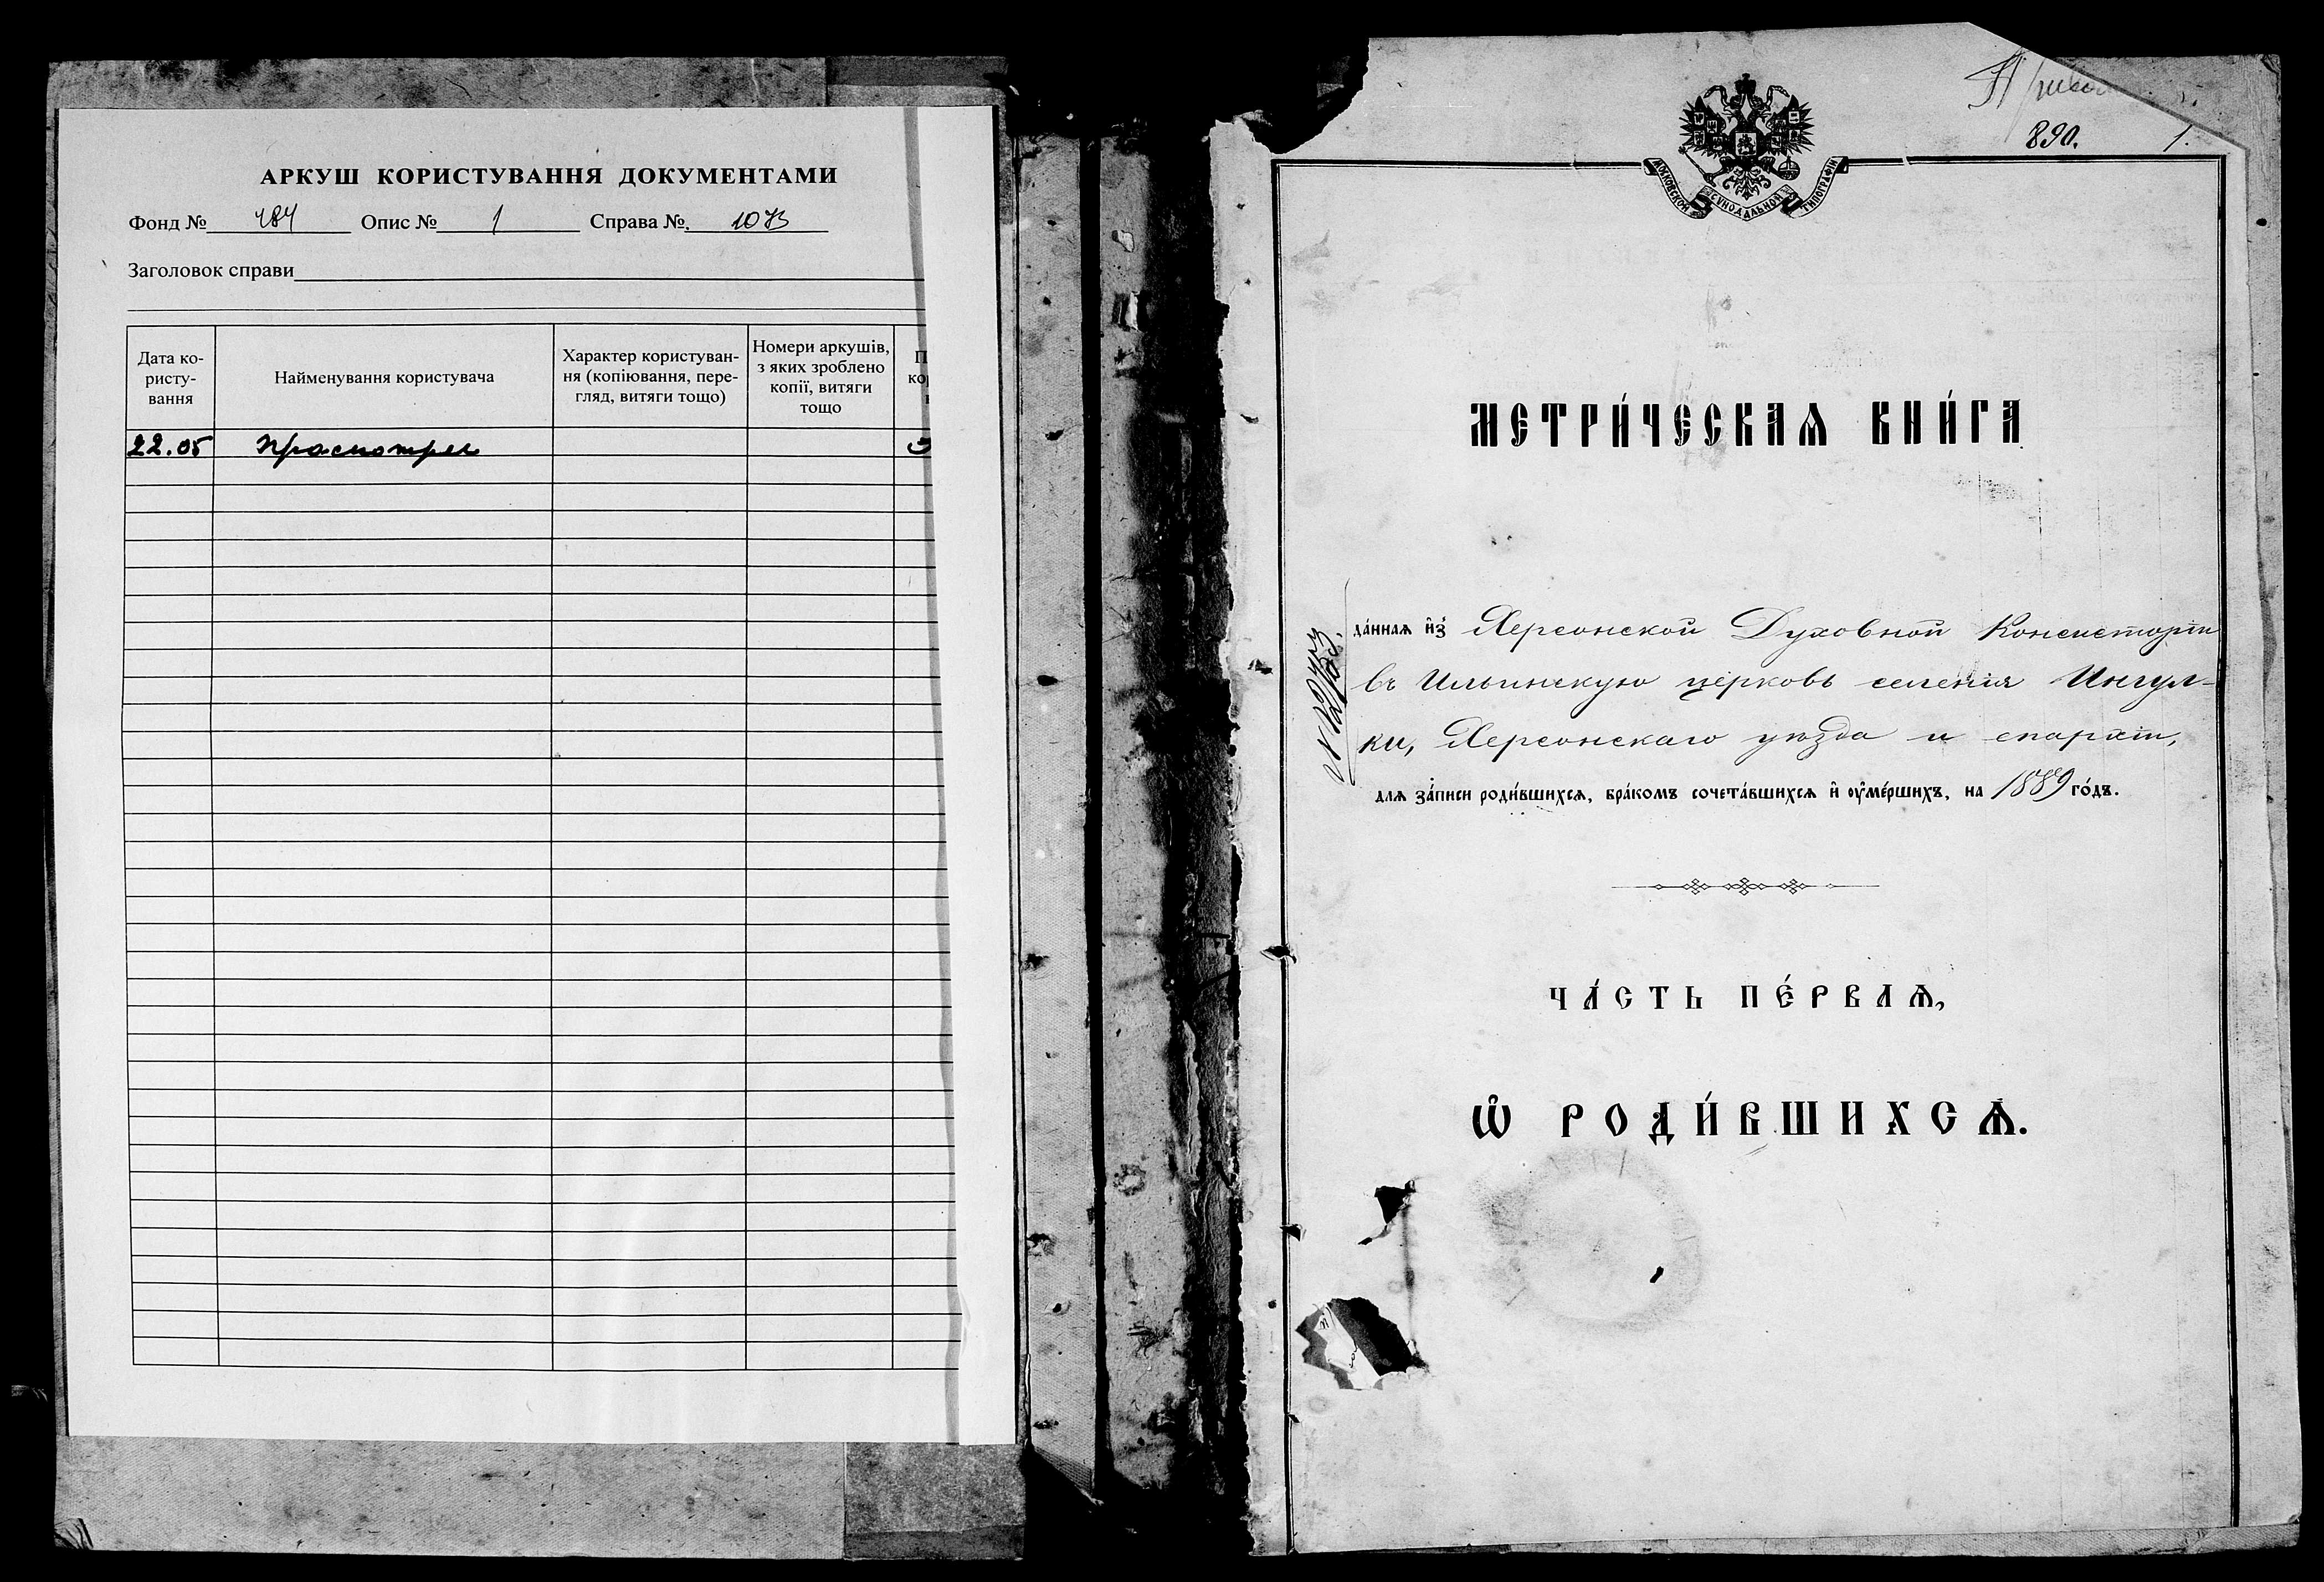 АРКУШ КОРИСТУВАННЯ ДОКУМЕНТАМИ
Фонд № 484 Опис № 1 Справа №
Заголовок справи
Дата ко-
ристу-
вання
Найменування користувача
Характер користуван-
ня (копіювання, пере-
гляд, витяги тощо)
Номери аркушів,
з яких зроблено
копії, витяги
тощо
22.05
890.
1.
МОСКОВСКОЙ СѴНОДАЛЬНОЙ ТИПОГРАФІИ
МЕТРИ́ЧЕСКАѦ КНИ́ГА
да́ннаѧ и҆з̾ Херсонской Духовной Консисторіи
въ Ильинскую церковь селенія Ингул-
ки, Херсонскаго уѣзда и епархіи,
длѧ за́писи роди́вшихсѧ, бра́комъ сочета́вшихсѧ и҆ ᲂу҆ме́ршихъ, на 1889 го́дъ.
ЧА́СТЬ ПЕ́РВАѦ,
Ѡ҆ РОДИ́ВШИХСѦ.